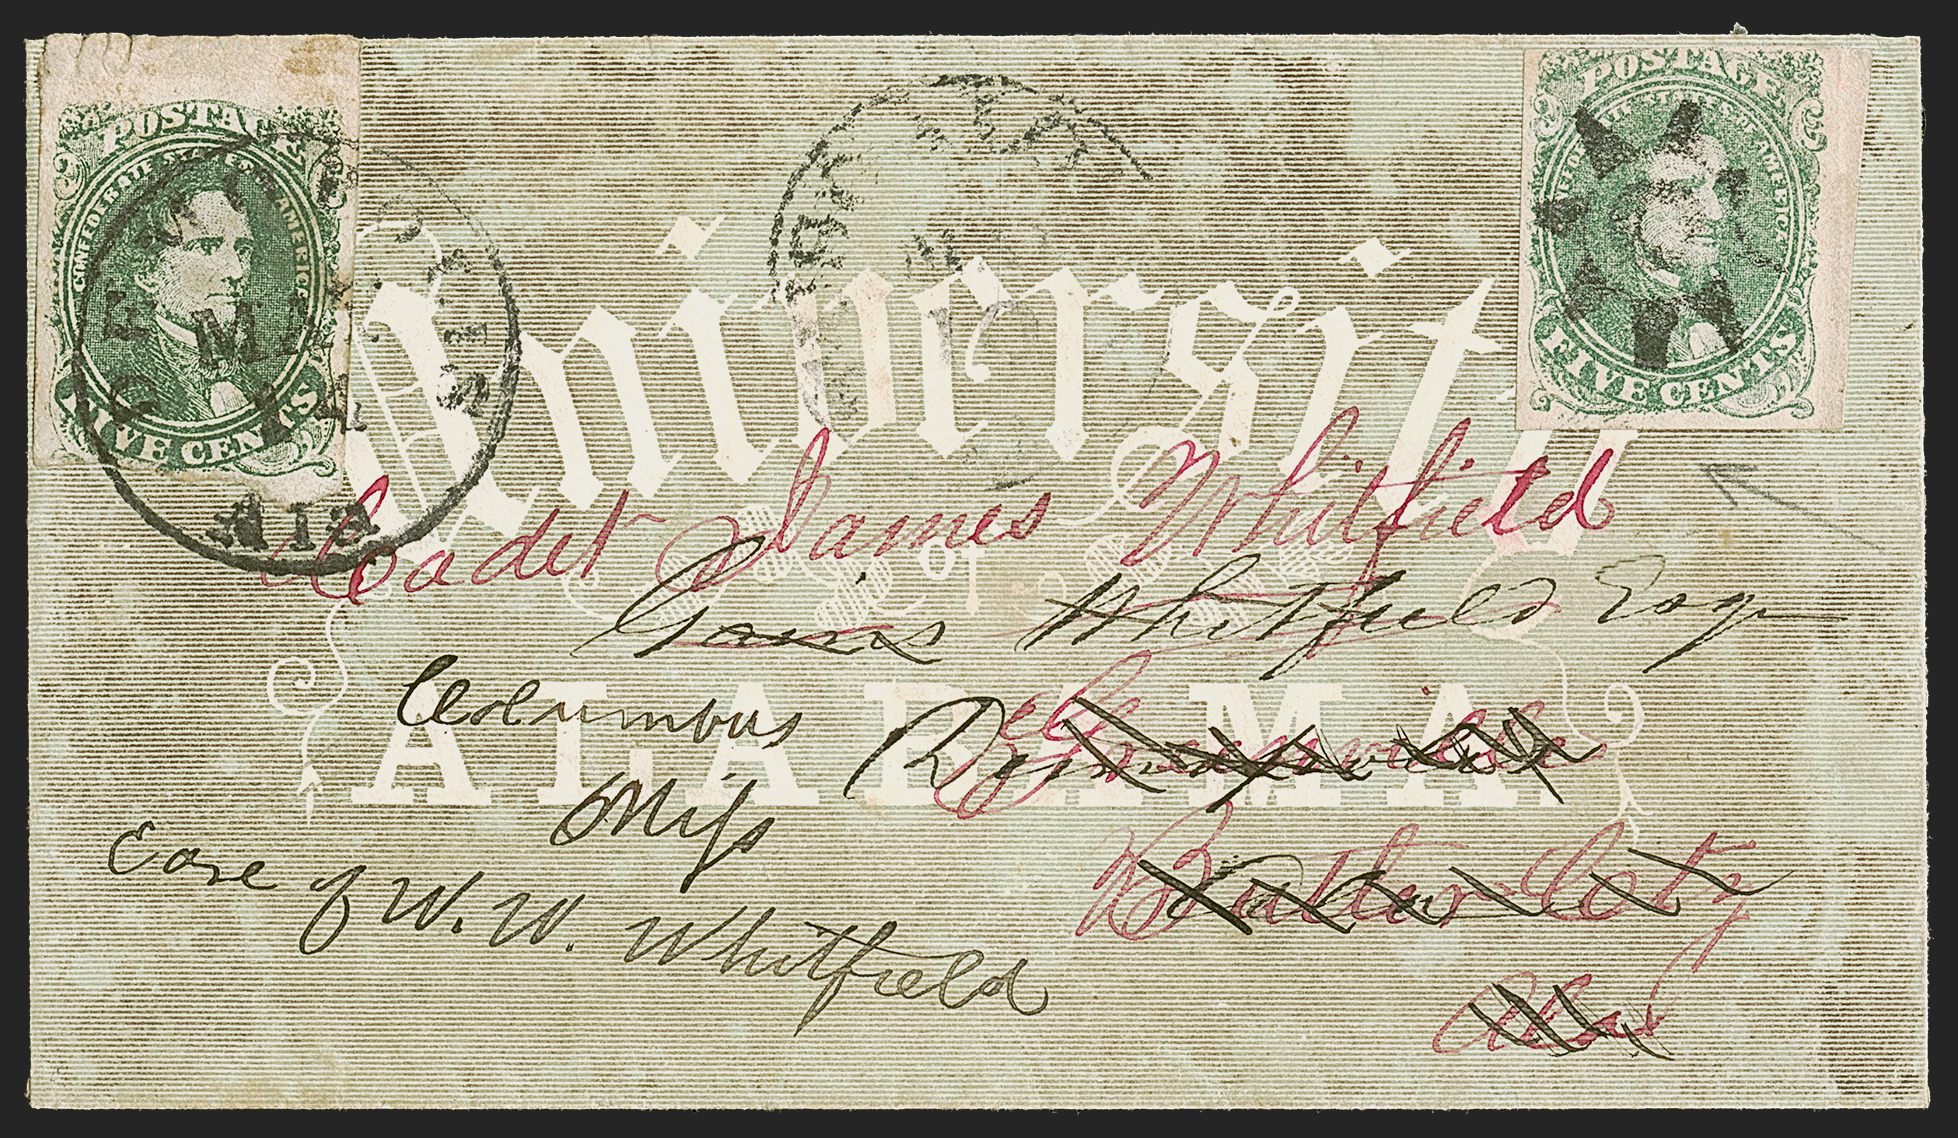 POSTAGE
CONFEDERATE STATES OF AMERICA
FIVE CENTS
MAY
ALA
POSTAGE
CONFEDERATE STATES OF AMERICA
FIVE CENTS
University
of
ALABAMA
Cadet James Whitfield
Gaius Whitfield Esq
Columbus
Miss
Care of W. W. Whitfield
Greenville
Butler Cty
Ala